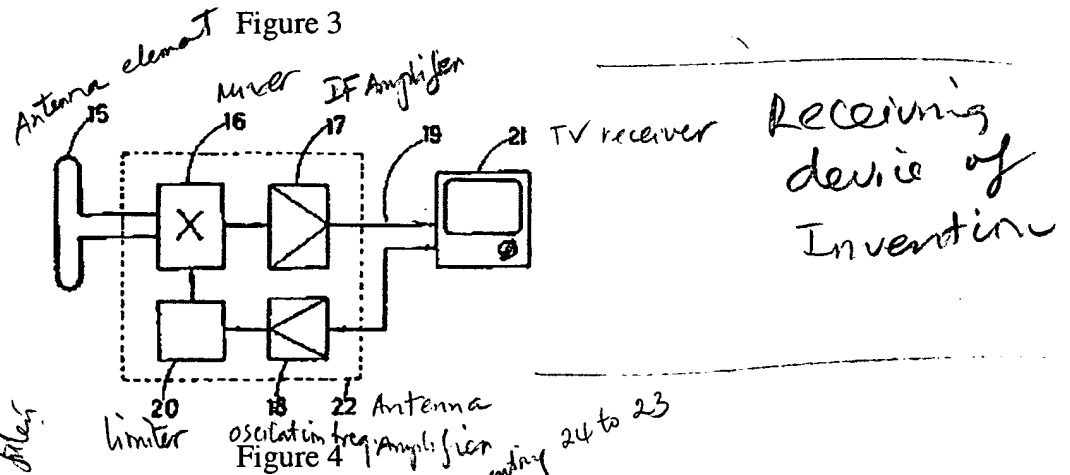 Figure 3
Antenna element
Mixer
IF Amplifier
15
16
17
19
21
TV receiver
Receiving
device of
Invention
20
18
22
Antenna
limiter
oscilation freq. Amplifier
Figure 4
24 to 23